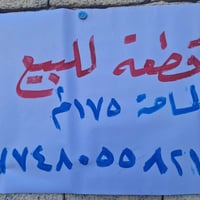 قطعة للبيع
المساحة ١٧٥م
٠٧٤٨٠٥٥٨٢١